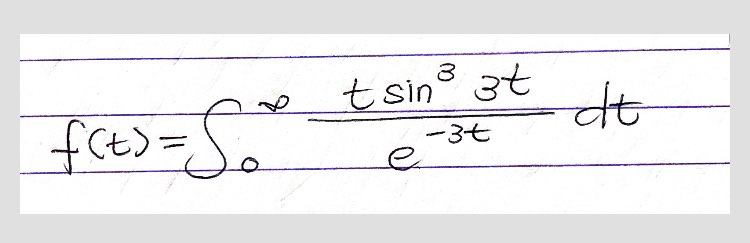 f(t) = ∫₀^∞ (t sin³ 3t) / (e^(-3t)) dt